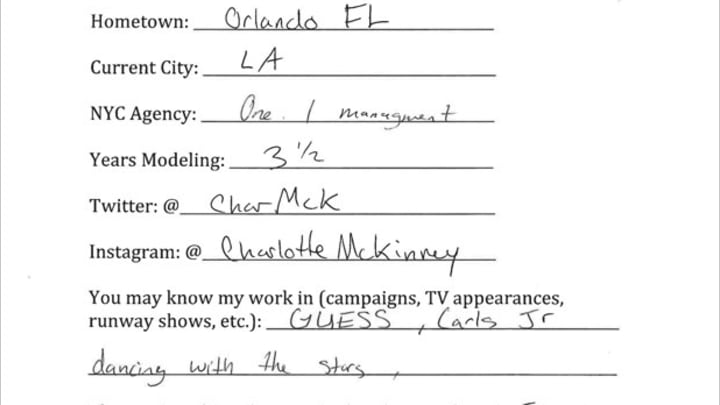 Hometown: Orlando FL
Current City: LA
NYC Agency: One. 1 managment
Years Modeling: 3 1/2
Twitter: @ CharMcK
Instagram: @ Charlotte McKinney
You may know my work in (campaigns, TV appearances,
runway shows, etc.): GUESS, Carls Jr
dancing with the stars,